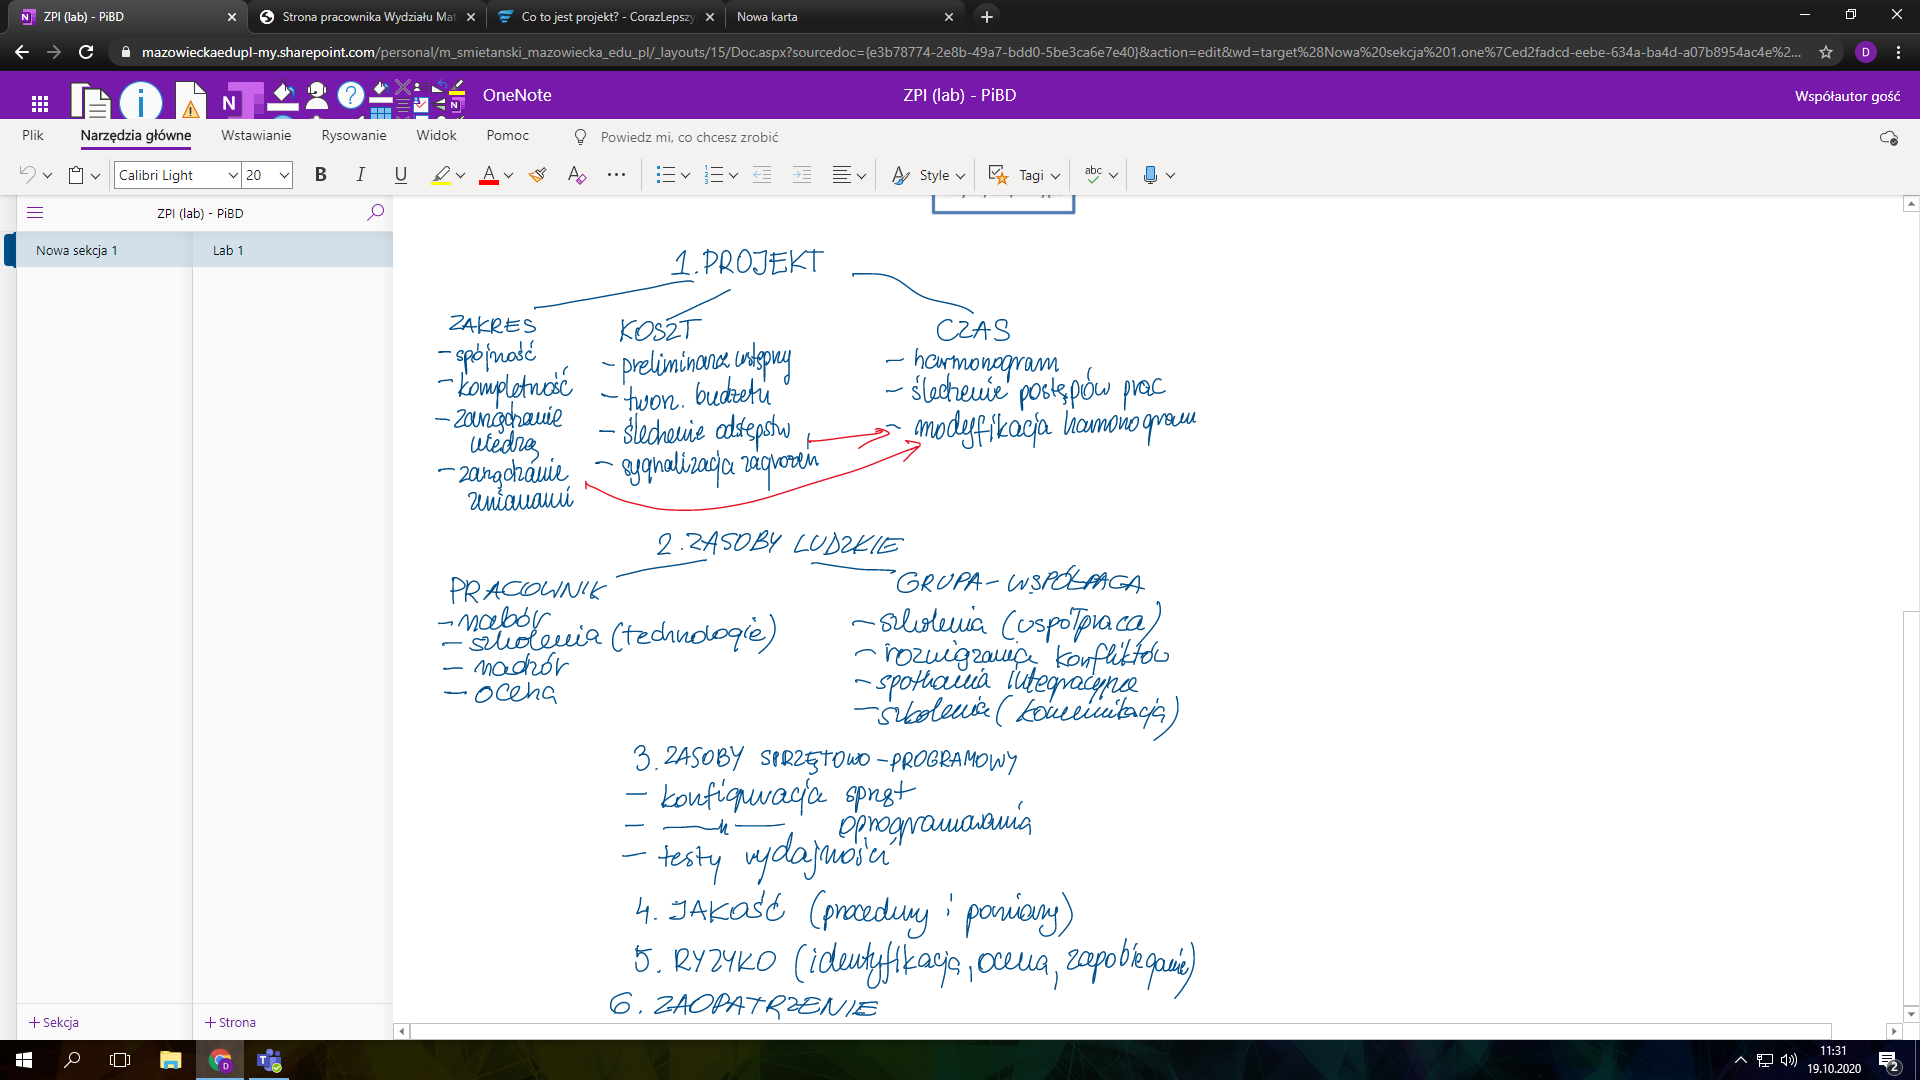 ZPI (lab) - PiBD
Strona pracownika Wydziału Mat
Co to jest projekt? - CorazLepszy
Nowa karta
mazowieckaedupl-my.sharepoint.com/personal/m_smietanski_mazowiecka_edu_pl/_layouts/15/Doc.aspx?sourcedoc={e3b78774-2e8b-49a7-bdd0-5be3ca6e7e40}&action=edit&wd=target%28Nowa%20sekcja%201.one%7Ced2fadcd-eebe-634a-ba4d-a07b8954ac4e%2...
D
OneNote
ZPI (lab) - PiBD
Współautor gość
Plik Narzędzia główne Wstawianie Rysowanie Widok Pomoc Powiedz mi, co chcesz zrobić
Calibri Light 20 B I U A Style Tagi abc
ZPI (lab) - PiBD
Nowa sekcja 1
Lab 1
1. PROJEKT
ZAKRES
- spójność
- kompletność
- zarządzanie
wiedzą
- zarządzanie
zmianami
KOSZT
- preliminarz wstępny
- tworz. budżetu
- śledzenie odstępstw
- sygnalizacja zagrożeń
CZAS
- harmonogram
- śledzenie postępów prac
- modyfikacja harmonogram
2. ZASOBY LUDZKIE
PRACOWNIK
- nabór
- szkolenia (technologie)
- nadzór
- ocena
GRUPA - WSPÓŁPACA
- szkolenia (współpraca)
- rozwiązania konfliktów
- spotkania integracyjne
- szkolenia (komunikacja)
3. ZASOBY SPRZĘTOWO-PROGRAMOWY
- konfiguracja sprzęt
- —〃— oprogramowania
- testy wydajności
4. JAKOŚĆ (procedury i pomiary)
5. RYZYKO (identyfikacja, ocena, zapobieganie)
6. ZAOPATRZENIE
+ Sekcja
+ Strona
11:31
19.10.2020
2